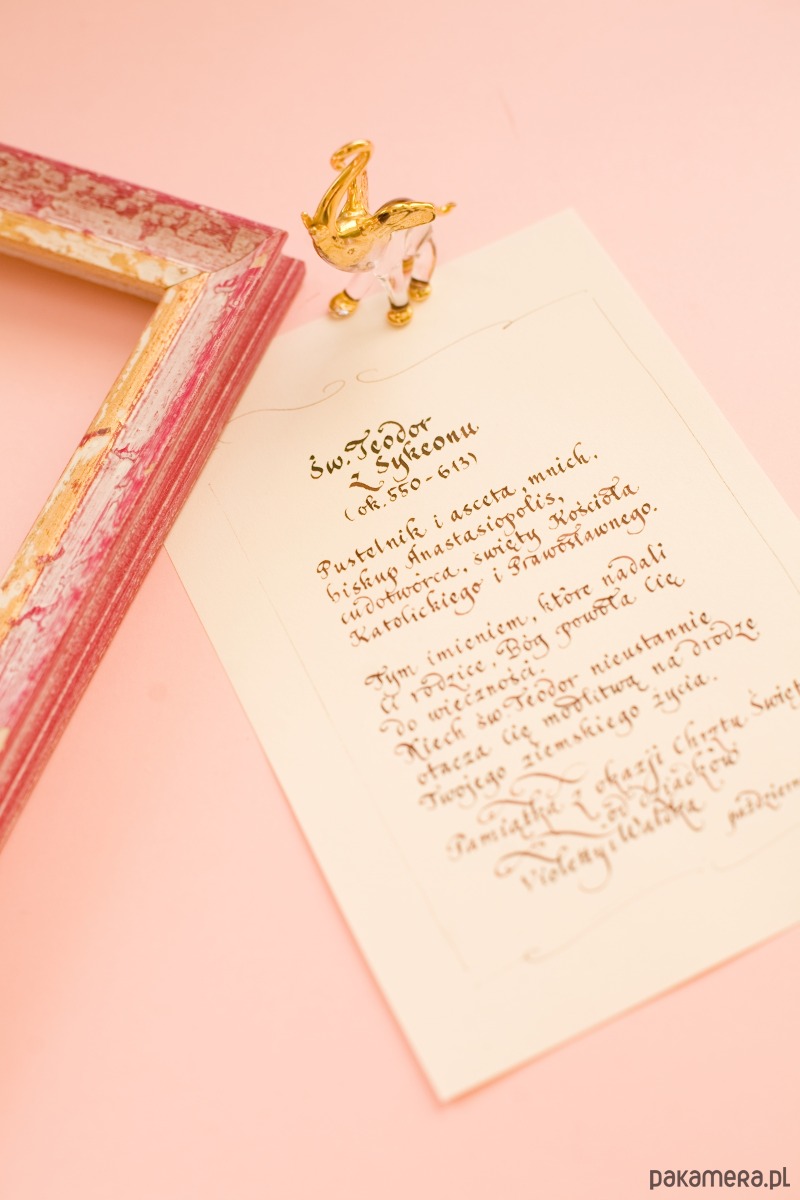 Św. Teodor
z Sykeonu
(ok. 550 - 613)
Pustelnik i asceta, mnich,
biskup Anastasiopolis,
cudotwórca, święty Kościoła
Katolickiego i Prawosławnego.
Tym imieniem, które nadali
Ci rodzice, Bóg powoła Cię
do wieczności.
Niech św. Teodor nieustannie
otacza Cię modlitwą na drodze
Twojego ziemskiego życia.
Pamiątka z okazji Chrztu Święt
od Dziadków
Violetty i Waldka
październ
pakamera.pl